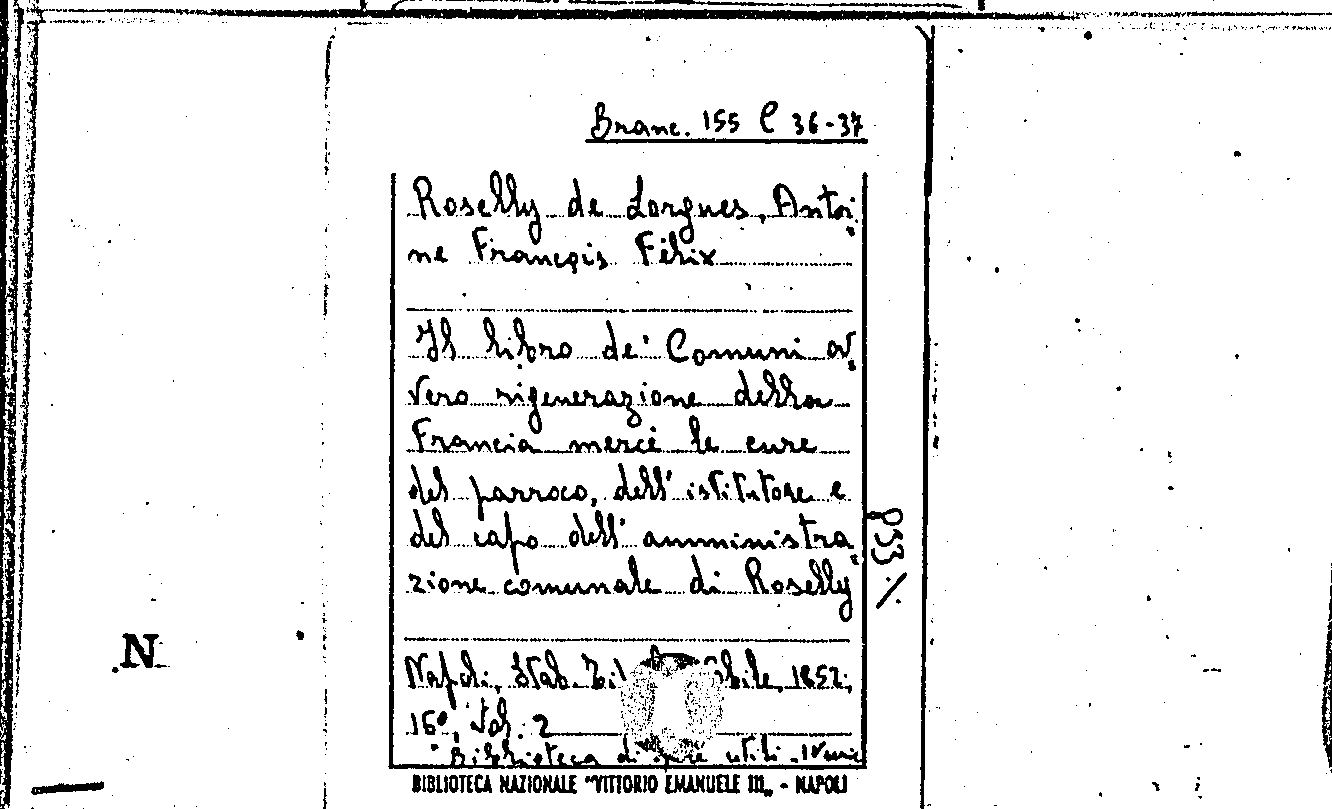 Branc. 155 C 36-37
Roselly de Lorgues, Antoi-
ne François Félix
Il libro de' Comuni ov-
vero rigenerazione della
Francia mercé le cure
del parroco, dell'istitutore e
del capo dell'amministra-
zione comunale di Roselly
Napoli, Stab. 1852;
16°, Vol. 2
"Biblioteca di utili
BIBLIOTECA NAZIONALE "VITTORIO EMANUELE III„ - NAPOLI
N